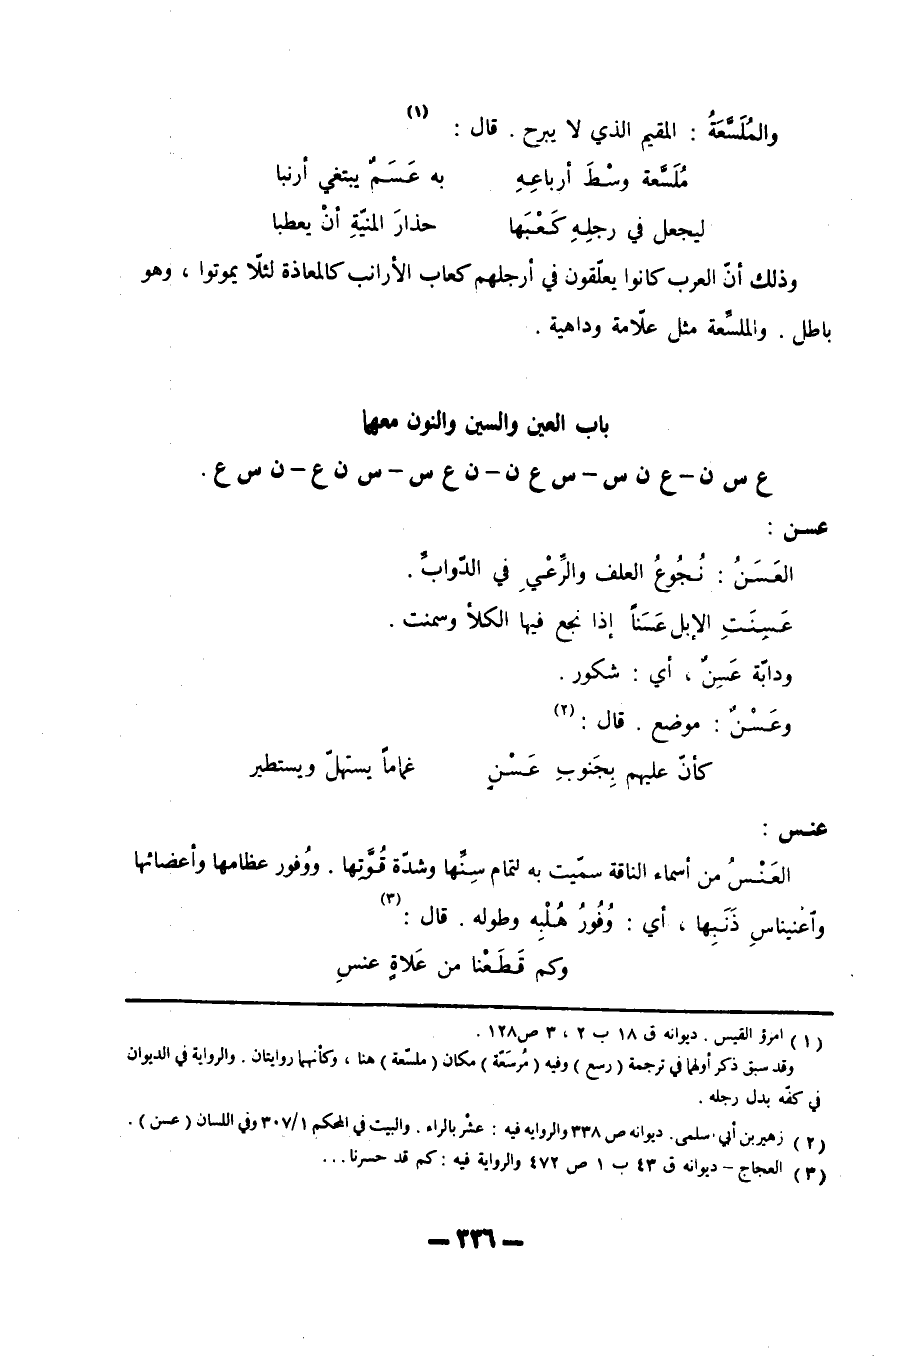 والمُلَسَّعَةُ : المقيم الذي لا يبرح . قال : (١)
مُلَسَّعة وسْطَ أرباعِهِ به عَسَمٌ يبتغي أرنبا
ليجعل في رجلِهِ كَعْبَها حذارَ المنيّةِ أنْ يعطبا
وذلك أنّ العرب كانوا يعلّقون في أرجلهم كعاب الأرانب كالمعاذة لئلّا يموتوا ، وهو
باطل . والملسِّعة مثل علّامة وداهية .
باب العين والسين والنون معها
ع س ن – ع ن س – س ع ن – ن ع س – س ن ع – ن س ع .
عسن :
العَسَنُ : نُجُوعُ العلف والرِّعْيِ في الدّوابِّ .
عَسِنَتِ الإبل عَسَناً إذا نجع فيها الكلأ وسمنت .
ودابّة عَسِنٌ ، أي : شكور .
وعَسْنٌ : موضع . قال : (٢)
كأنّ عليهم بِجَنوبِ عَسْنٍ غماماً يستهلّ ويستطير
عنس :
العَنْسُ من أسماء الناقة سمّيت به لتمام سِنِّها وشدّة قُوَّتِها . ووُفور عظامها وأعضائها
وآعنيناسِ ذَنَبِها ، أي : وُفُورُ هُلْبِه وطوله . قال : (٣)
وكم قَطَعْنا من عَلاةٍ عنسِ
(١) امرؤ القيس . ديوانه ق ١٨ ب ٢ ، ٣ ص ١٢٨ .
وقد سبق ذكر أولهما في ترجمة ( رسع ) وفيه ( مُرسَعَة ) مكان ( ملسّعة ) هنا ، وكأنهما روايتان . والرواية في الديوان
في كفّه بدل رجله .
(٢) زهير بن أبي سلمى. ديوانه ص ٣٣٨ والروايه فيه : عشْر بالراء . والبيت في المحكم ٣٠٧/١ وفي اللسان ( عسن ) .
(٣) العجاج – ديوانه ق ٤٣ ب ١ ص ٤٧٢ والرواية فيه : كم قد حسرنا ...
– ٣٣٦ –